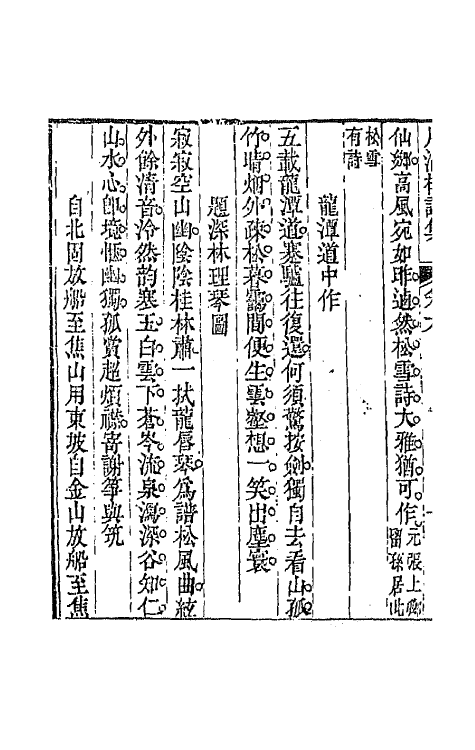 仙鄉高風宛如昨逌然松雪詩大雅猶可作元張上卿留孫居此
松雪有詩
龍潭道中作
五載龍潭道蹇驢往復還何須驚按劍獨自去看山孤
竹晴烟外疎松暮靄間便生雲壑想一笑出塵寰
題深林理琴圖
寂寂空山幽陰陰桂林肅一扙龍唇琴爲譜松風曲絃
外餘清音泠然韵寒玉白雲下蒼岑流泉瀉深谷知仁
山水心卽境愜幽獨孤賞超煩襟寄謝箏與筑
自北固放船至焦山用東坡自金山放船至焦